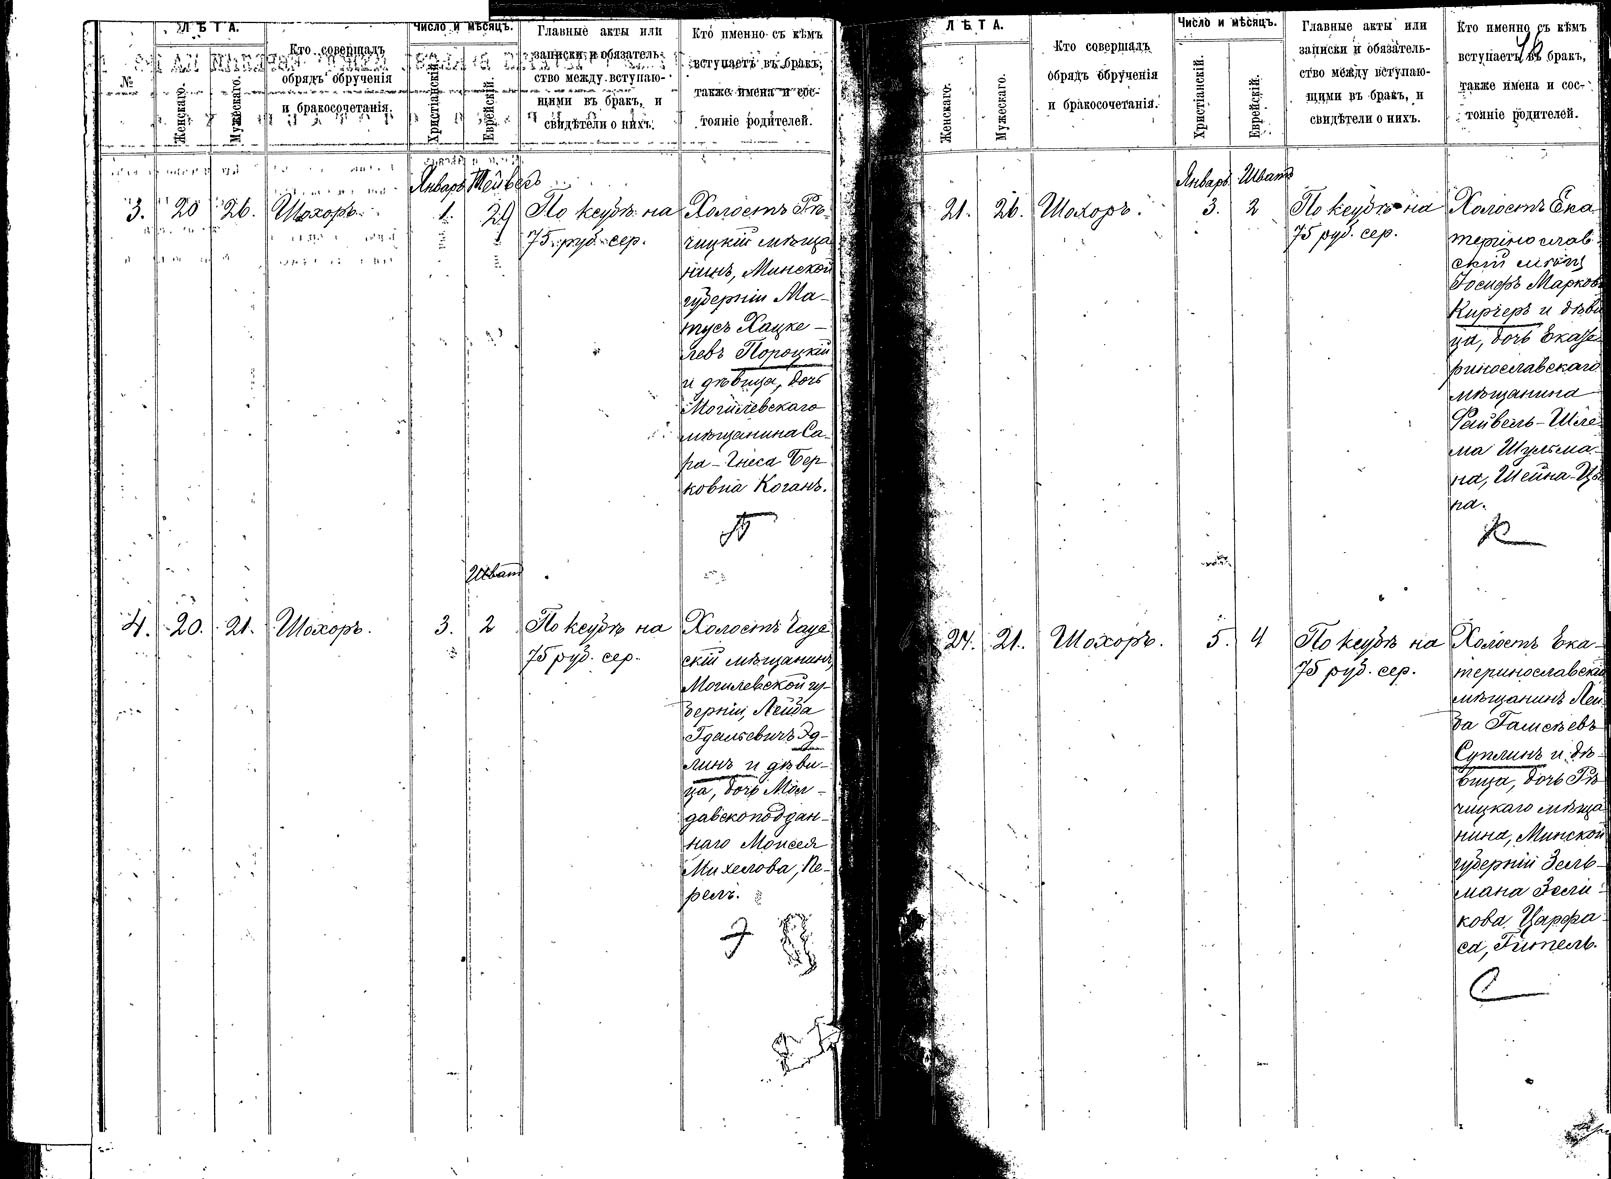 ЛѢТА.
Число и мѣсяцъ.
№
Женскаго.
Мужескаго.
Кто совершалъ
обрядъ обрученія
и бракосочетанія.
Христіанскій.
Еврейскій.
Главные акты или
записки и обязатель-
ство между вступаю-
щими въ бракъ, и
свидѣтели о нихъ.
Кто именно съ кѣмъ
вступаетъ въ бракъ,
также имена и сос-
тояніе родителей.
Январь Тейвесъ
3. 20 26. Шохоръ. 1. 29
По ксубѣ на
75 руб. сер.
Холостъ Рѣ-
чицкій мѣща
нинъ, Минской
губерніи Ма-
тусъ Хацке-
левъ Пороцкій
и дѣвица, дочь
Могилевскаго
мѣщанина Са-
ра-Гнеса Бер
ковна Коганъ.
П
Шватъ
4. 20. 21. Шохоръ. 3. 2
По ксубѣ на
75 руб. сер.
Холостъ Чаус
скій мѣщанинъ,
Могилевской гу-
берніи, Лейба
Гдальевичъ Эд-
линъ и дѣви-
ца, дочь Мол-
давскоподдан-
наго Моисея
Михелова, Пе-
рель.
Э
ЛѢТА.
Число и мѣсяцъ.
Женскаго.
Мужескаго.
Кто совершалъ
обрядъ обрученія
и бракосочетанія.
Христіанскій.
Еврейскій.
Главные акты или
записки и обязатель-
ство между вступаю-
щими въ бракъ, и
свидѣтели о нихъ.
Кто именно съ кѣмъ
вступаетъ въ бракъ,
также имена и сос-
тояніе родителей.
Январь Шватъ
21. 26. Шохоръ. 3. 2
По ксубѣ на
75 руб. сер.
Холостъ Ека
теринослав-
скій мѣщ
Іосифъ Марковъ
Кирчеръ и дѣви
ца, дочь Екате
ринославскаго
мѣщанина
Файвель-Шле
ма Шульма-
на, Шейна-Ци
па.
К
24. 21. Шохоръ. 5. 4
По ксубѣ на
75 руб. сер.
Холостъ Ека-
теринославскій
мѣщанинъ Лей
ба
Суплинъ и дѣ-
вица, дочь Рѣ
чицкаго мѣща
нина, Минской
губерніи Зель-
мана Зели-
кова Царфа-
са, Гитель.
С